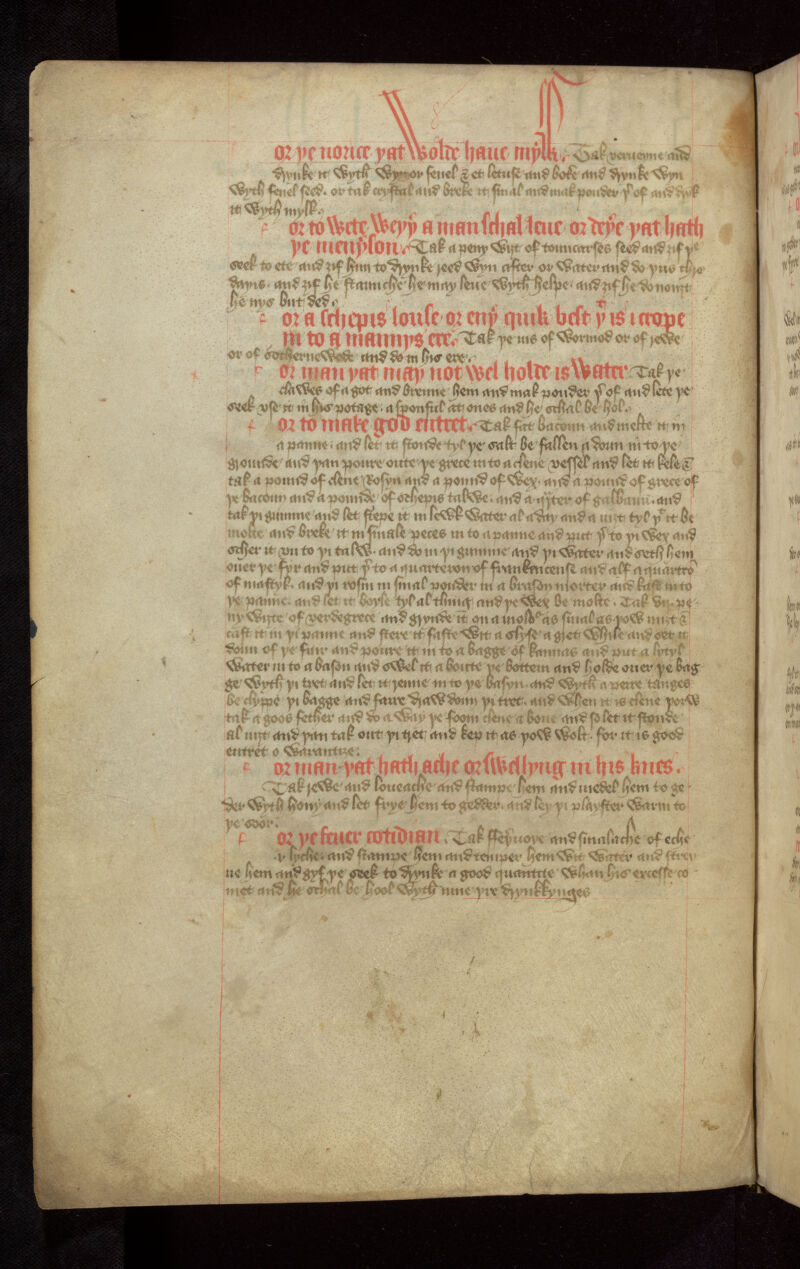 or ye norice yat wolde haue mylk. Tak verueyne and
drynke it wyth wyn or fenel & et letuse and bole and drynke wyn
wyth fenel sed. or tak crystal and breke it smal and mak pouder yr of and drynk
it wyth mylk.
or to wete weyy a man schal leue or deye yat hath
ye menyson. Tak a peny wyt of tounecarses seed and gif ye
seek to ete and gif hym to drynke reed wyn after or water and do yus thre
dayis. and gif he staunche he may leue wyth helpe. and gif he do nouut
he nys but ded.
or a schepis louse or eny quik best yt is icrope
in to a mannys ere. Tak ye ius of wormod or of rewe
or of sotherenewode and do in his ere.
or man yat may not wel holde is water Tak ye
clawes of a got and brenne hem and mak pouder yr of and lete ye
seek vse it in his potage. a sponful at ones and he schal be hol.
or to make god entret. Tak fat bacoun and melte it in
a panne. and let it stonde tyl ye salt be fallen a doun in to ye
grounde and yan poure oute ye grece in to a clene vessel and let it kele &
tak a pound of clene Rosyn and a pound of wex. and a pound of grece of
ye bacoun and a pounde of schepis talwe. and a qrter of galbanu. and
tak yi gumme and let stepe it in lewk water al a day and a niit tyl yt it be
molte and breke it in smale peces in to a panne and put yr to yi wex and
scher it vn to yi talw. and do in yi gumme and yi water and seth hem
ouer ye fyr and put yr to a quarteron of frankencense and alf a quartro
of mastyk. and yi rosin in smal pouder in a brason morter and kast in to
ye panne. and let it boyle tyl al thing and ye wex be molte. Tak ye
ny wyte of verdegrece and grynde it on a molst as smal as yow miit &
cast it in yi panne and stere it faste wit a slyse a gret while and set it
doun of ye fuir and poure it in to a bagge of kanuas and put a lytyl
water in to a bason and swel it a boute ye bottem and holde ouer ye bag
ge wyth yi tret and let it renne in to ye basyn. and wyth a peire tanges
be clyppe yi bagge and faire draw doun yi tret. and when it is clene yorw
tak a goos fether and do a way ye foom clene a boue and so let it stonde
al niit and yan tak out yi tret and kep it as yow wolt. for it is good
entret o warantise.
or man yat hath ache or swellyng in his knes.
Tak rewe and loueache and stampe hem and medel hem to ge
der wyth hony and let frye hem to gedder. and ley yi playster warm to
ye soor.
or ye feuer cotidian. Tak and smalache of eche
y lyche. and stampe hem and temper hem wit water and strey
ne hem and gyf ye seek to drynke a good quantite whan his excesse co
met and he schal be hool wyth nine yre drynkkynges